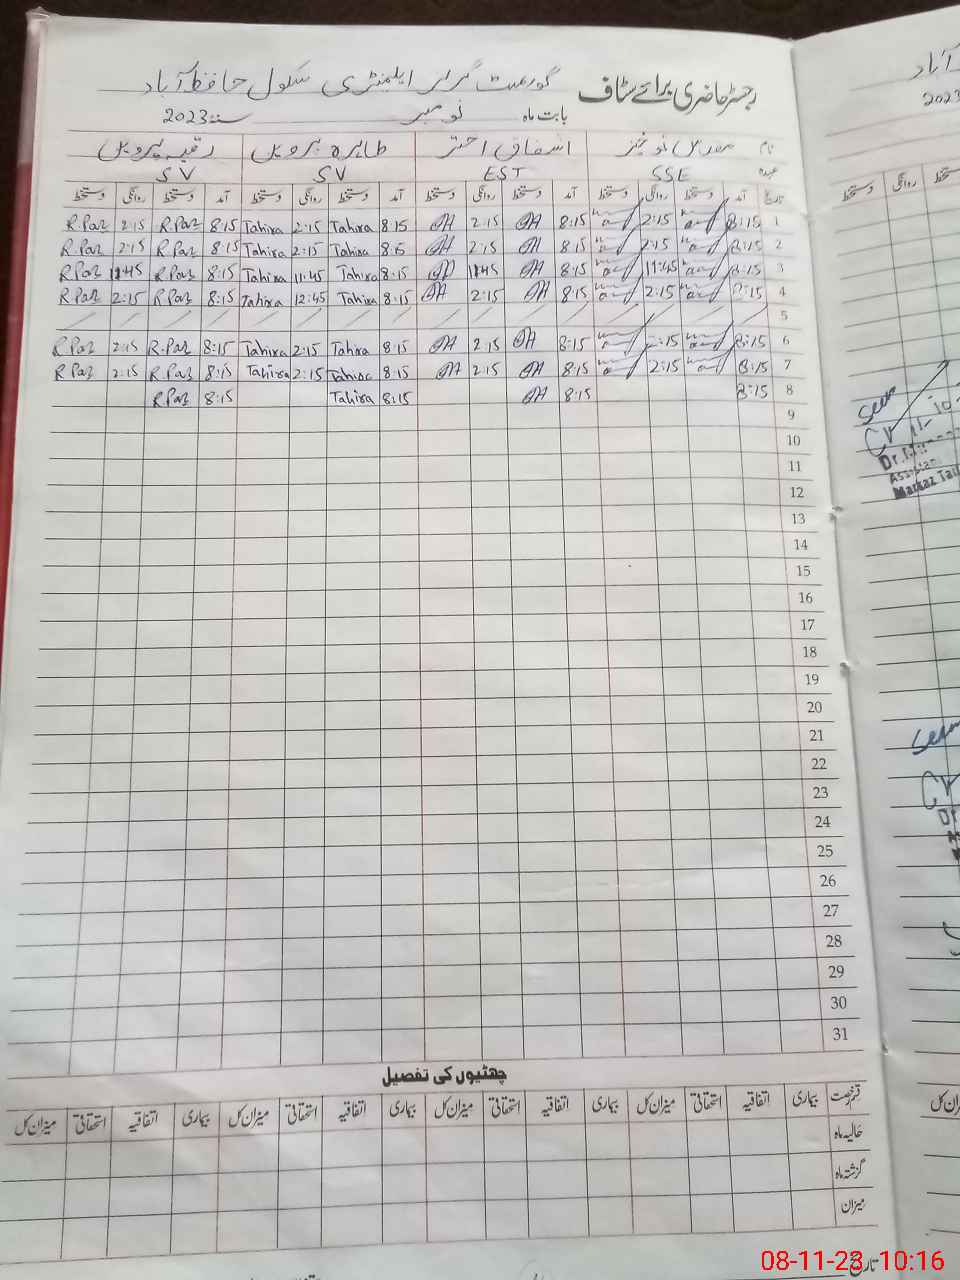 رجسٹر حاضری برائے سٹاف گورنمنٹ گرلز ایلیمنٹری سکول حافظ آباد
بابت ماہ نومبر سنہ 2023
نام اشفاق احمد طاہرہ پروین رقیہ پروین
عہدہ SSE EST SV SV
تاریخ آمد دستخط روانگی دستخط آمد دستخط روانگی دستخط آمد دستخط روانگی دستخط آمد دستخط روانگی دستخط
1 8:15 2:15 8:15 2:15 8:15 Tahira 2:15 Tahira 8:15 R.Paz 2:15 R.Paz
2 8:15 2:15 8:15 2:15 8:15 Tahira 2:15 Tahira 8:15 R.Paz 2:15 R.Paz
3 8:15 11:45 8:15 11:45 8:15 Tahira 11:45 Tahira 8:15 R.Paz 11:45 R.Paz
4 8:15 2:15 8:15 2:15 8:15 Tahira 12:45 Tahira 8:15 R.Paz 2:15 R.Paz
5
6 8:15 2:15 8:15 2:15 8:15 Tahira 2:15 Tahira 8:15 R.Paz 2:15 R.Paz
7 8:15 2:15 8:15 2:15 8:15 Tahira 2:15 Tahira 8:15 R.Paz 2:15 R.Paz
8 8:15 8:15 8:15 Tahira 8:15 R.Paz
9
10
11
12
13
14
15
16
17
18
19
20
21
22
23
24
25
26
27
28
29
30
31
چھٹیوں کی تفصیل
قسم رخصت بیماری اتفاقیہ استحقاقی میزان کل بیماری اتفاقیہ استحقاقی میزان کل بیماری اتفاقیہ استحقاقی میزان کل بیماری اتفاقیہ استحقاقی میزان کل
حالیہ ماہ
گزشتہ ماہ
میزان
تاریخ
آباد
2023
روانگی دستخط
Seen
Dr.
Assistan
Markaz
Seen
08-11-23 10:16